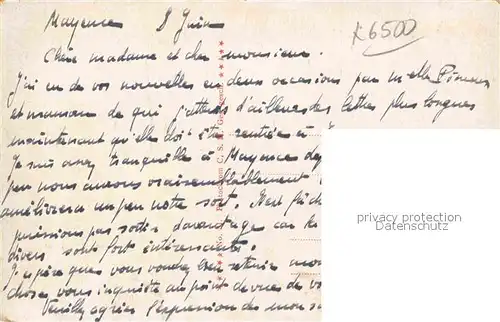 Mayence 8 Juin
K6500
Chère madame et cher monsieur.
J'ai eu de vos nouvelles en deux occasions par melle
et maman de qui j'attends d'ailleurs des lettres plus longues
maintenant qu'elle doit être rentrée à
Je suis assez tranquille à Mayence
peu nous aurons vraisemblablement
améliorera un peu notre sort. Il est
puissions pas sortir davantage car
divers sont fort intéressants.
J'espère que vous voudrez bien
chose vous inquiète au point de vue de
Veuillez agréer l'expression de mon
privacy protection
Datenschutz